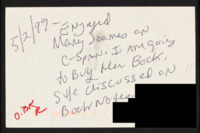 5/2/99 - Enjoyed
Many James on
C-Span. I am going
to Buy Her Book.
She discussed on
Book Notes